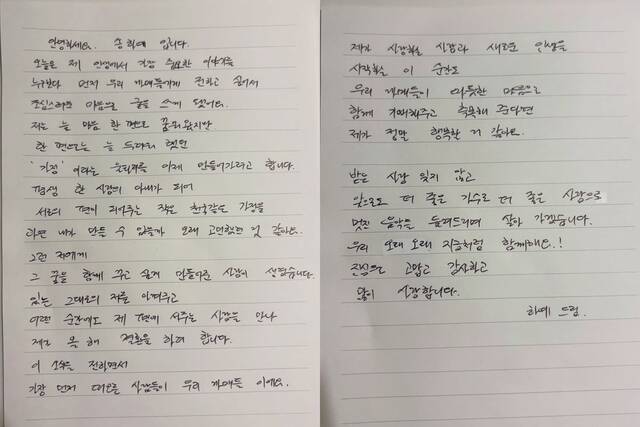 안녕하세요. 송하예 입니다.
오늘은 제 인생에서 가장 소중한 이야기를
누구보다 먼저 우리 게애들에게 전하고 싶어서
조심스러운 마음으로 글을 쓰게 됐어요.
저는 늘 마음 한 편으로 꿈꿔왔지만
한 편으로는 늘 두려워 했던
'가정' 이라는 울타리를 이제 만들어가려고 합니다.
평생 한 사람의 아내가 되어
서로의 편이 되어주는 작은 천국같은 가정을
과연 내가 만들 수 있을까 오래 고민했던 것 같아요.
그런 저에게
그 꿈을 함께 꾸고 싶게 만들어준 사람이 생겼습니다.
있는 그대로의 저를 아껴주고
어떤 순간에도 제 편에 서주는 사람을 만나
저는 올 해 결혼을 하려 합니다.
이 소식을 전하면서
가장 먼저 떠오른 사람들이 우리 게애들 이에요.
제가 사랑하는 사람과 새로운 인생을
시작하는 이 순간도
우리 게애들이 따듯한 마음으로
함께 기뻐해주고 축복해 준다면
제가 정말 행복할 거 같아요.
받은 사랑 잊지 않고
앞으로도 더 좋은 가수로 더 좋은 사람으로
멋진 음악을 들려드리며 살아 가겠습니다.
우리 오래 오래 지금처럼 함께해요.!
진심으로 고맙고 감사하고
많이 사랑합니다.
하예 드림.